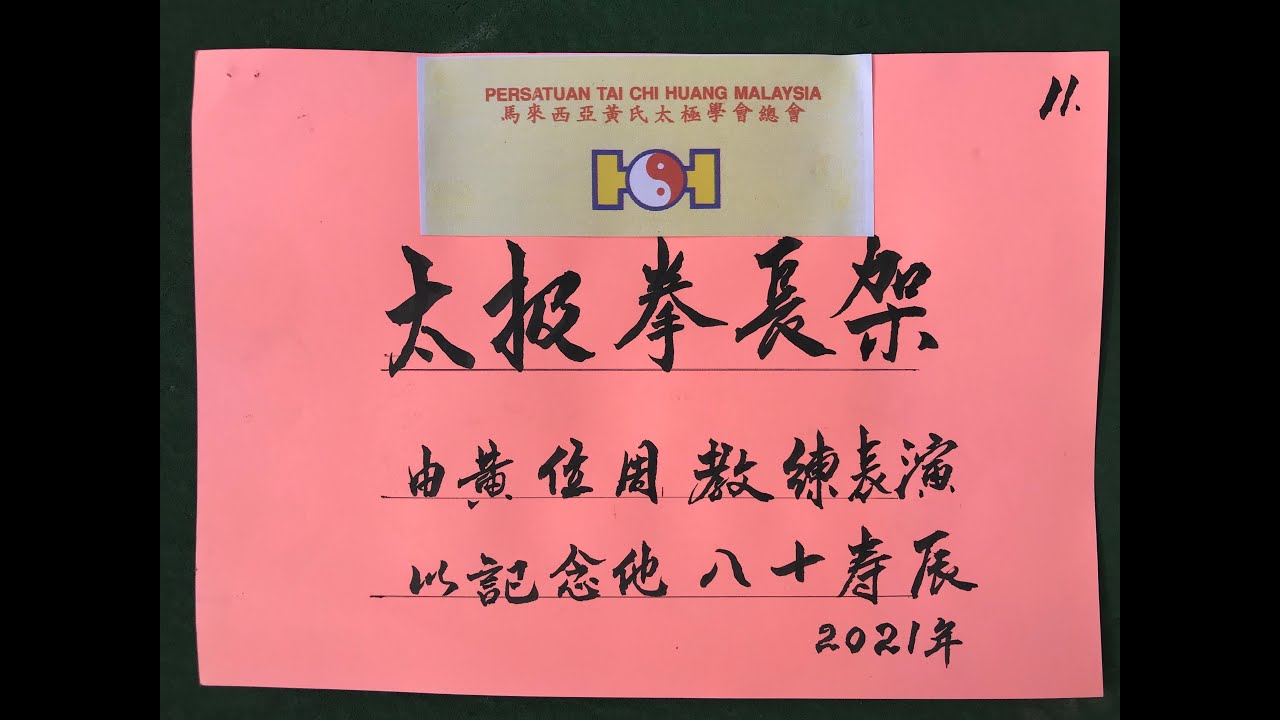 PERSATUAN TAI CHI HUANG MALAYSIA
馬來西亞黃氏太極學會總會
11.
太极拳長架
由黃位固教練表演
以記念他八十寿辰
2021年